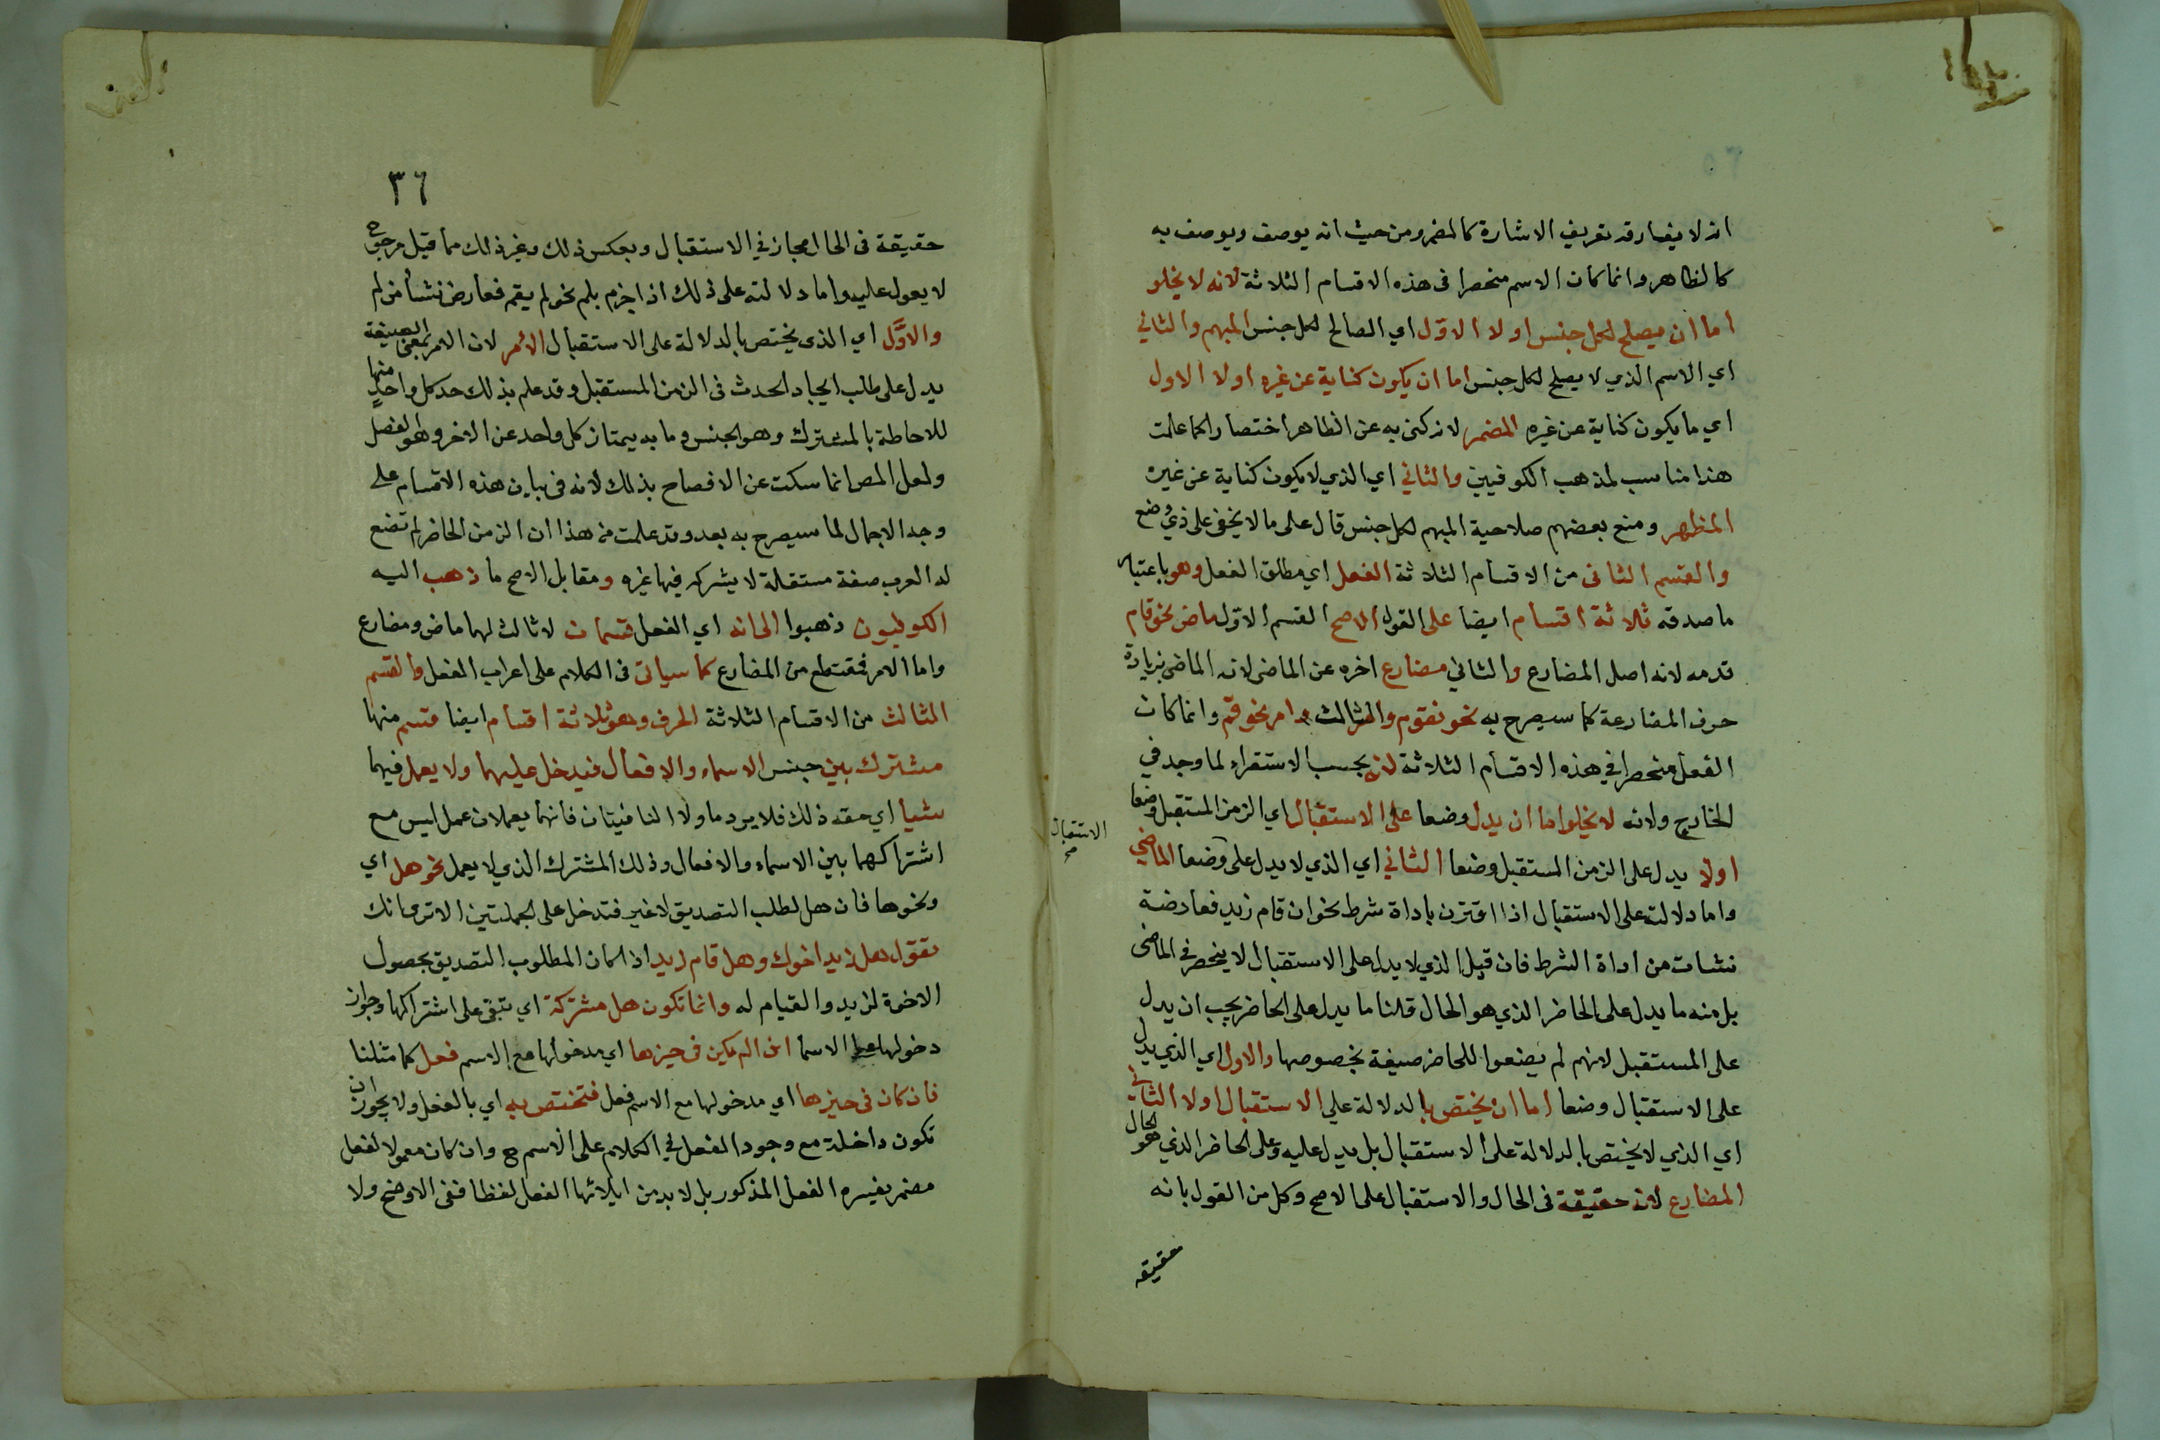 انه لا يفارقه تعريف الاشارة كالمضمر ومن حيث انه يوصف ويوصف به
كالظاهر وانما كان الاسم منحصرا فى هذه الاقسام الثلاثة لانه لا يخلو
اما ان يصلح لكل جنس اولا الاول اي الصالح لكل جنس المبهم والثاني
اي الاسم الذي لا يصلح لكل جنس اما ان يكون كناية عن غيره اولا الاول
اي ما يكون كناية عن غيره المضمر لانه كنى به عن الظاهر اختصارا كما علمت
هذا مناسب لمذهب الكوفيين والثاني اي الذي لا يكون كناية عن غيره
المظهر ومنع بعضهم صلاحية المبهم لكل جنس قال على ما لا يخفى على ذي وضع
والقسم الثانى من الاقسام الثلاثة الفعل اي مطلق الفعل وهو باعتبار
ما صدقه ثلاثة اقسام ايضا على القول الاصح القسم الاول ماض نحو قام
قدمه لانه اصل المضارع والثاني مضارع اخره عن الماضى لانه الماضى بزيادة
حرف المضارعة كما سيصرح به نحو نقوم والثالث امر نحو قم وانما كان
الفعل منحصرا في هذه الاقسام الثلاثة لانه بحسب الاستقراء لما وجد في
الخارج ولانه لا يخلو اما ان يدل وضعا على الاستقبال اي الزمن المستقبل وضعا
اولا يدل على الزمن المستقبل وضعا الثاني اي الذي لا يدل على وضعا الماضي
الاستقبال صح
واما دلالته على الاستقبال اذا اقترن باداة شرط نحو ان قام زيد فعارضة
نشات من اداة الشرط فان قيل الذي لا يدل على الاستقبال لا ينحصر في الماضى
بل منه ما يدل على الحاضر الذي هو الحال قلنا ما يدل على الحاضر يجب ان يدل
على المستقبل لانهم لم يضعوا للحاضر صيغة بخصوصها والاول اي الذي يدل
على الاستقبال وضعا اما ان يختص بالدلالة على الاستقبال اولا الثانى
اي الذي لا يختص بالدلالة على الاستقبال بل يدل عليه وعلى الحاضر الذي هو الحال
المضارع لانه حقيقة فى الحال والاستقبال على الاصح وكل من القول بانه
حقيقه
٣٦
حقيقة فى الحال مجاز في الاستقبال وبعكس ذلك وغير ذلك مما قيل مرجوح
لا يعول عليه واما دلالته على ذلك اذا جزم بلم نحو لم يقم فعارض نشأ من لم
والاول اي الذى يختص بالدلالة على الاستقبال الامر لان الامر بمعنى الصيغة
يدل على طلب ايجاد الحدث فى الزمن المستقبل وقد علم بذلك حد كل واحد منها
للاحاطة بالمشترك وهو الجنس وما به يمتاز كل واحد عن الاخر وهو الفصل
ولعل المص انما سكت عن الافصاح بذلك لانه فى بيان هذه الاقسام على
وجه الاجمال لما سيصرح به بعد وقد علمت من هذا ان الزمن الحاضر لم تضع
له العرب صفة مستقلة لا يشركه فيها غيره ومقابل الاصح ما ذهب اليه
الكوفيون ذهبوا الى انه اي الفعل قسمان لا ثالث لهما ماض ومضارع
واما الامر فمقتطع من المضارع كما سياتى فى الكلام على اعراب الفعل والقسم
الثالث من الاقسام الثلاثة الحرف وهو ثلاثة اقسام ايضا قسم منها
مشترك بين جنس الاسماء والافعال فيدخل عليهما ولا يعمل فيهما
شيأ اي حقه ذلك فلا يرد ما ولا النافيتان فانهما يعملان عمل ليس مع
اشتراكهما بين الاسماء والافعال وذلك المشترك الذي لا يعمل نحو هل اي
ونحوها فان هل لطلب التصديق لا غير فتدخل على الجملتين الا ترى انك
تقول هل زيد اخوك وهل قام زيد اذا كان المطلوب التصديق بحصول
الاخوة لزيد والقيام له وانما تكون هل مشتركة اي تبقى على اشتراكها وجواز
دخولها على الاسما اذا لم يكن فى حيزها اي مدخولها مع الاسم فعل كما مثلنا
فان كان فى حيزها اي مدخولها مع الاسم فعل فتختص به اي بالفعل ولا يجوز ان
تكون داخلة مع وجود الفعل في الكلام على الاسم ح وان كان معمولا لفعل
مضمر يفسره الفعل المذكور بل لا بد من ايلائها الفعل لفظا ففى الاوضح ولا